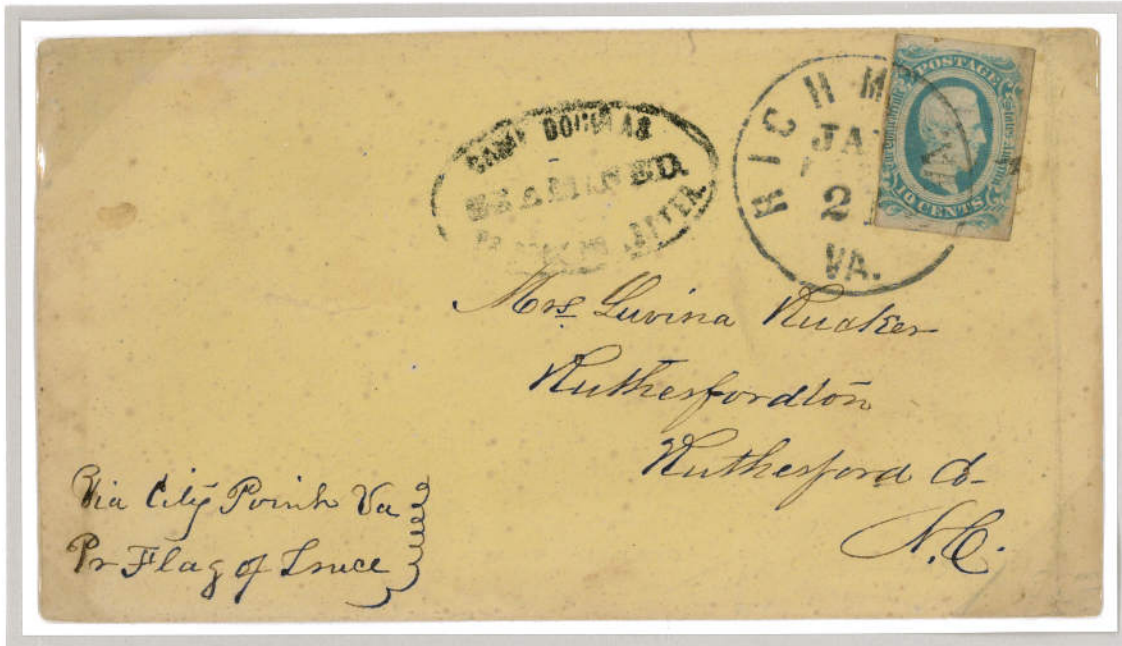 CAMP DOUGLAS
EXAMINED.
RICHM
JAN
2
VA.
POSTAGE
The Confederate
States of America
10 CENTS
Mrs. Luvina Rucker
Rutherfordton
Rutherford Co-
N.C.
Via City Point Va
Pr Flag of Truce